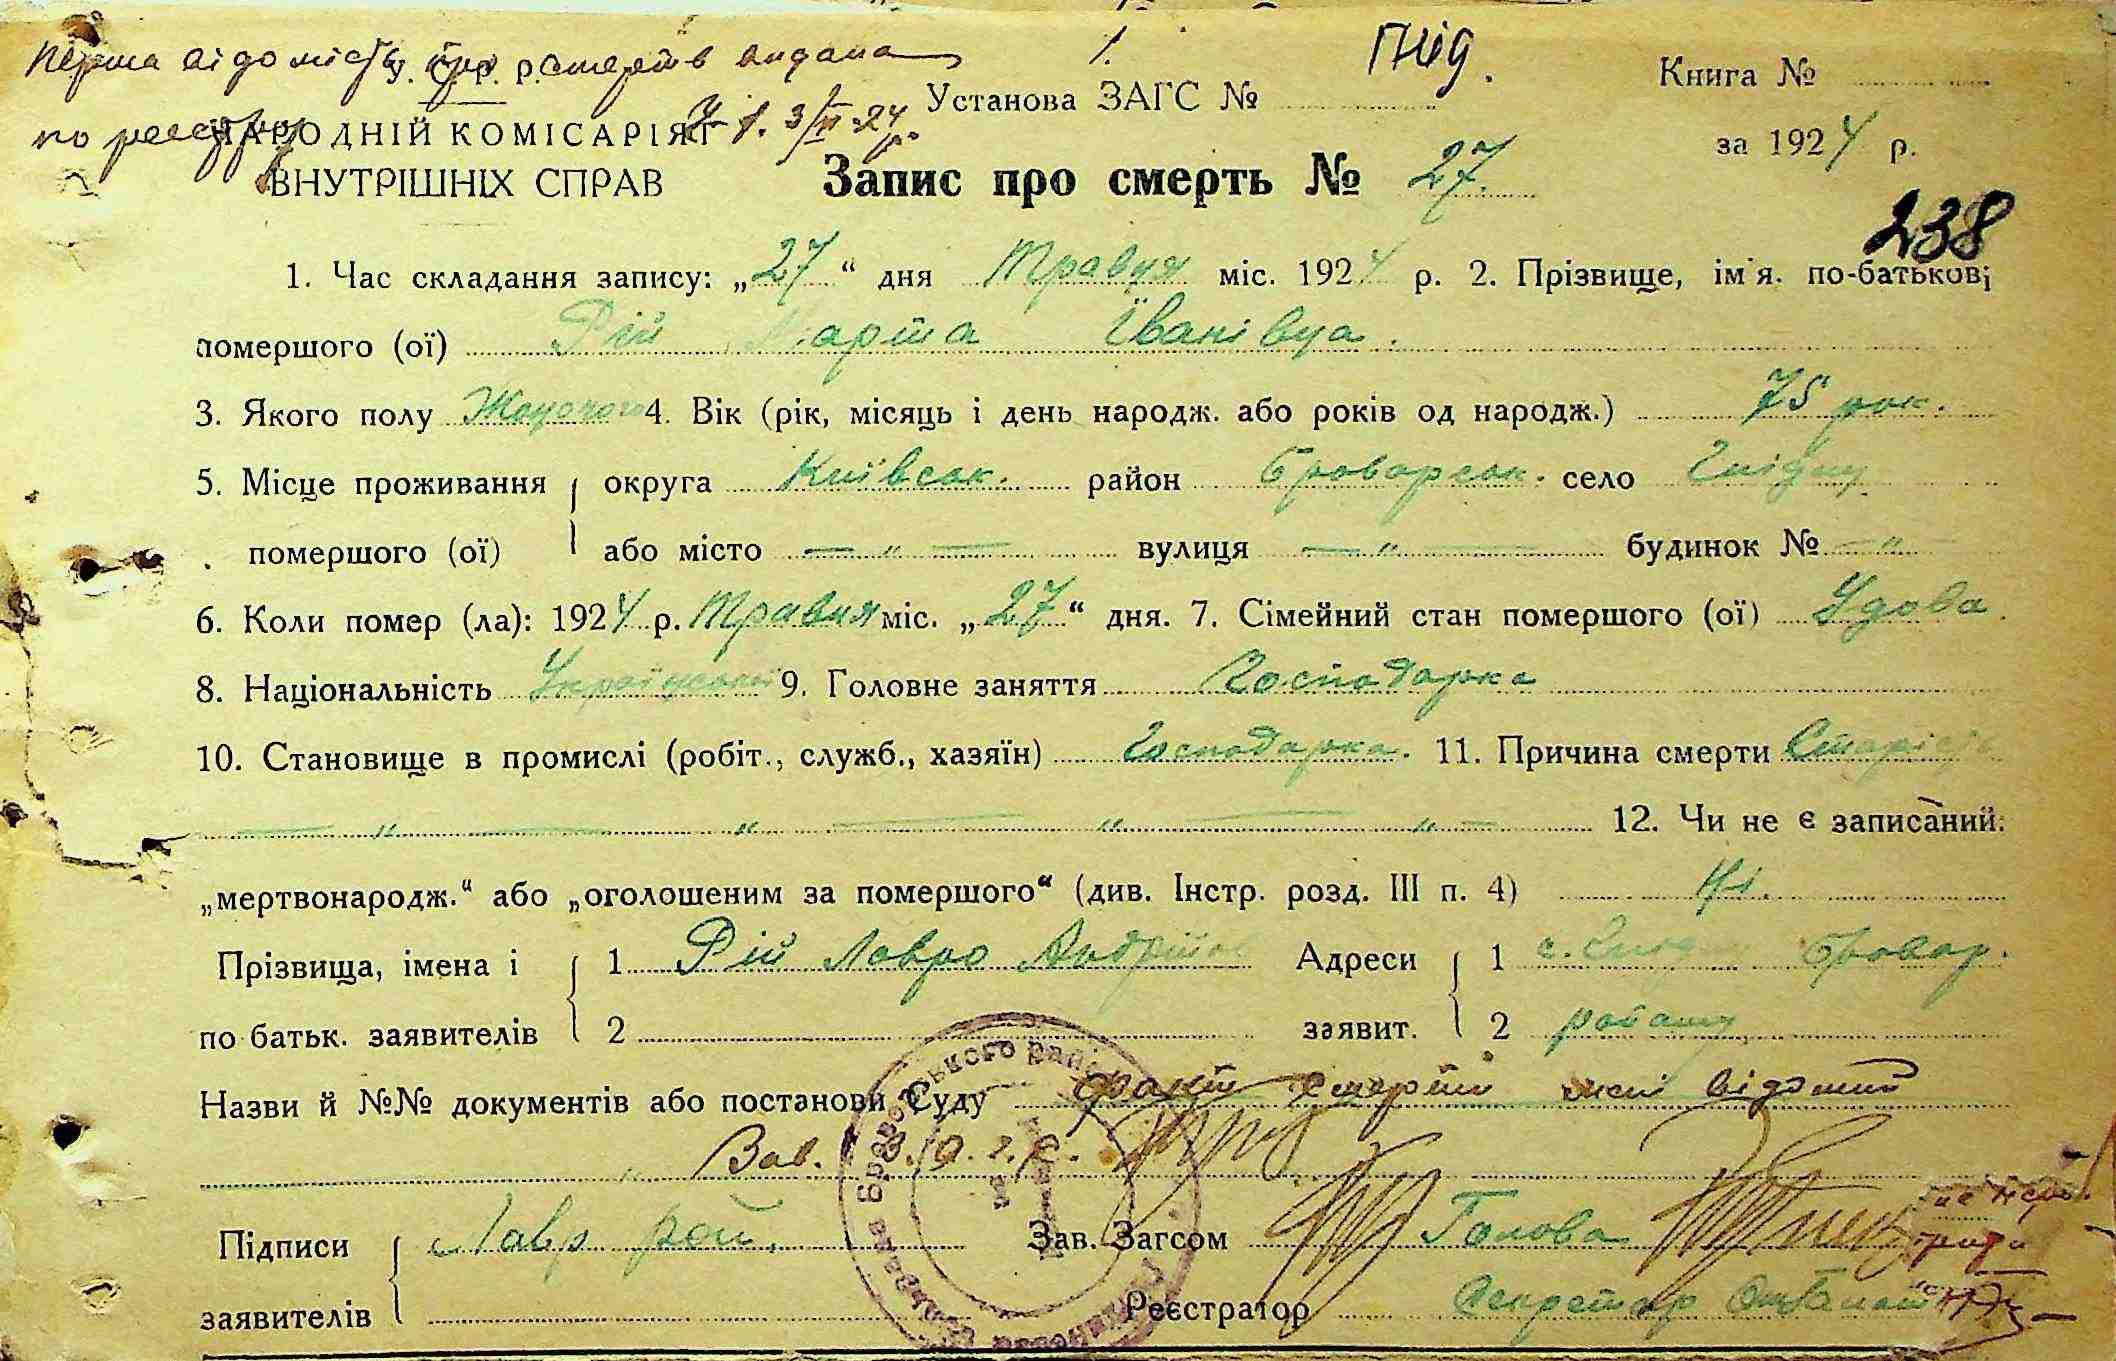 Перша відомість про смерть видана
по реєстру № 1. 3/VI-24 р.
У. С. Р. Р.
НАРОДНІЙ КОМІСАРІЯТ
ВНУТРІШНІХ СПРАВ
1.
Установа ЗАГС № Гнід.
Книга №
за 1924 р.
Запис про смерть № 27.
238
1. Час складання запису: „27“ дня Травня міс. 1924 р. 2. Прізвище, ім'я. по-батькові
помершого (ої) Рій Марта Іванівна.
3. Якого полу Жоночого 4. Вік (рік, місяць і день народж. або років од народж.) 75 рок.
5. Місце проживання округа Київськ. район Броварськ. село Гнідин
помершого (ої) або місто — „ — вулиця — „ — будинок № — „ —
6. Коли помер (ла): 1924 р. Травня міс. „27“ дня. 7. Сімейний стан помершого (ої) Удова.
8. Національність 9. Головне заняття Господарка
10. Становище в промислі (робіт., служб., хазяїн) Господарка. 11. Причина смерти Старість
— „ — „ — „ — „ — 12. Чи не є записаний:
„мертвонародж.“ або „оголошеним за помершого“ (див. Інстр. розд. III п. 4) Ні.
Прізвища, імена і 1 Рій Лавро Андрійов Адреси 1 с. Гнідин Бровар.
по батьк. заявителів 2 заявит. 2 району
Назви й №№ документів або постанови Суду факт смерти мені відомий
Зав. З.А.Г.С.
Підписи Лавр Рой. Зав. Загсом Голова
заявителів Реєстратор Секретар